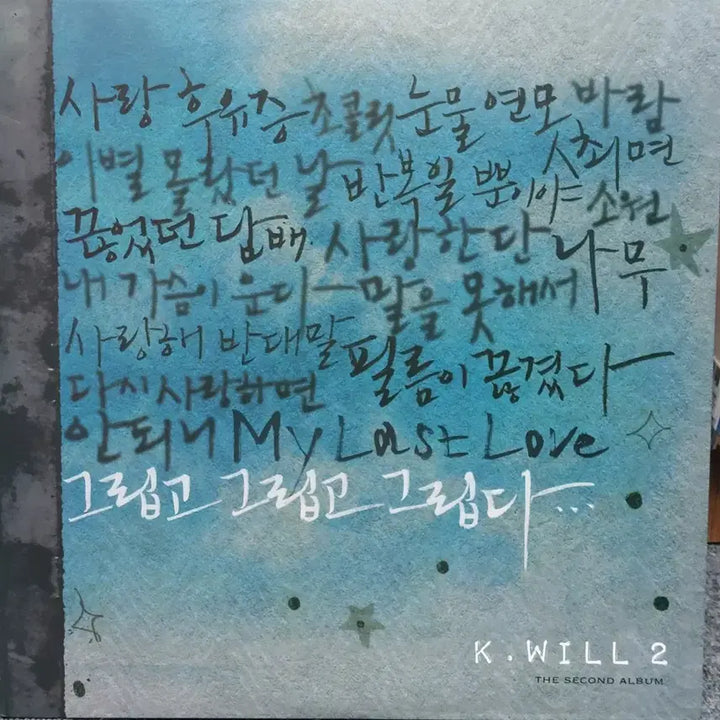 사랑 후유증 초콜릿 눈물 연모 바람
이별 몰랐던 날 반복일 뿐이야 최면
끊었던 담배 사랑한단 소원
내 가슴이 운다 말을 못해서 나무
사랑해 반대말 필름이 끊겼다
다시 사랑하면
안되니 My Last Love
그립고 그립고 그립다...
K.WILL 2
THE SECOND ALBUM